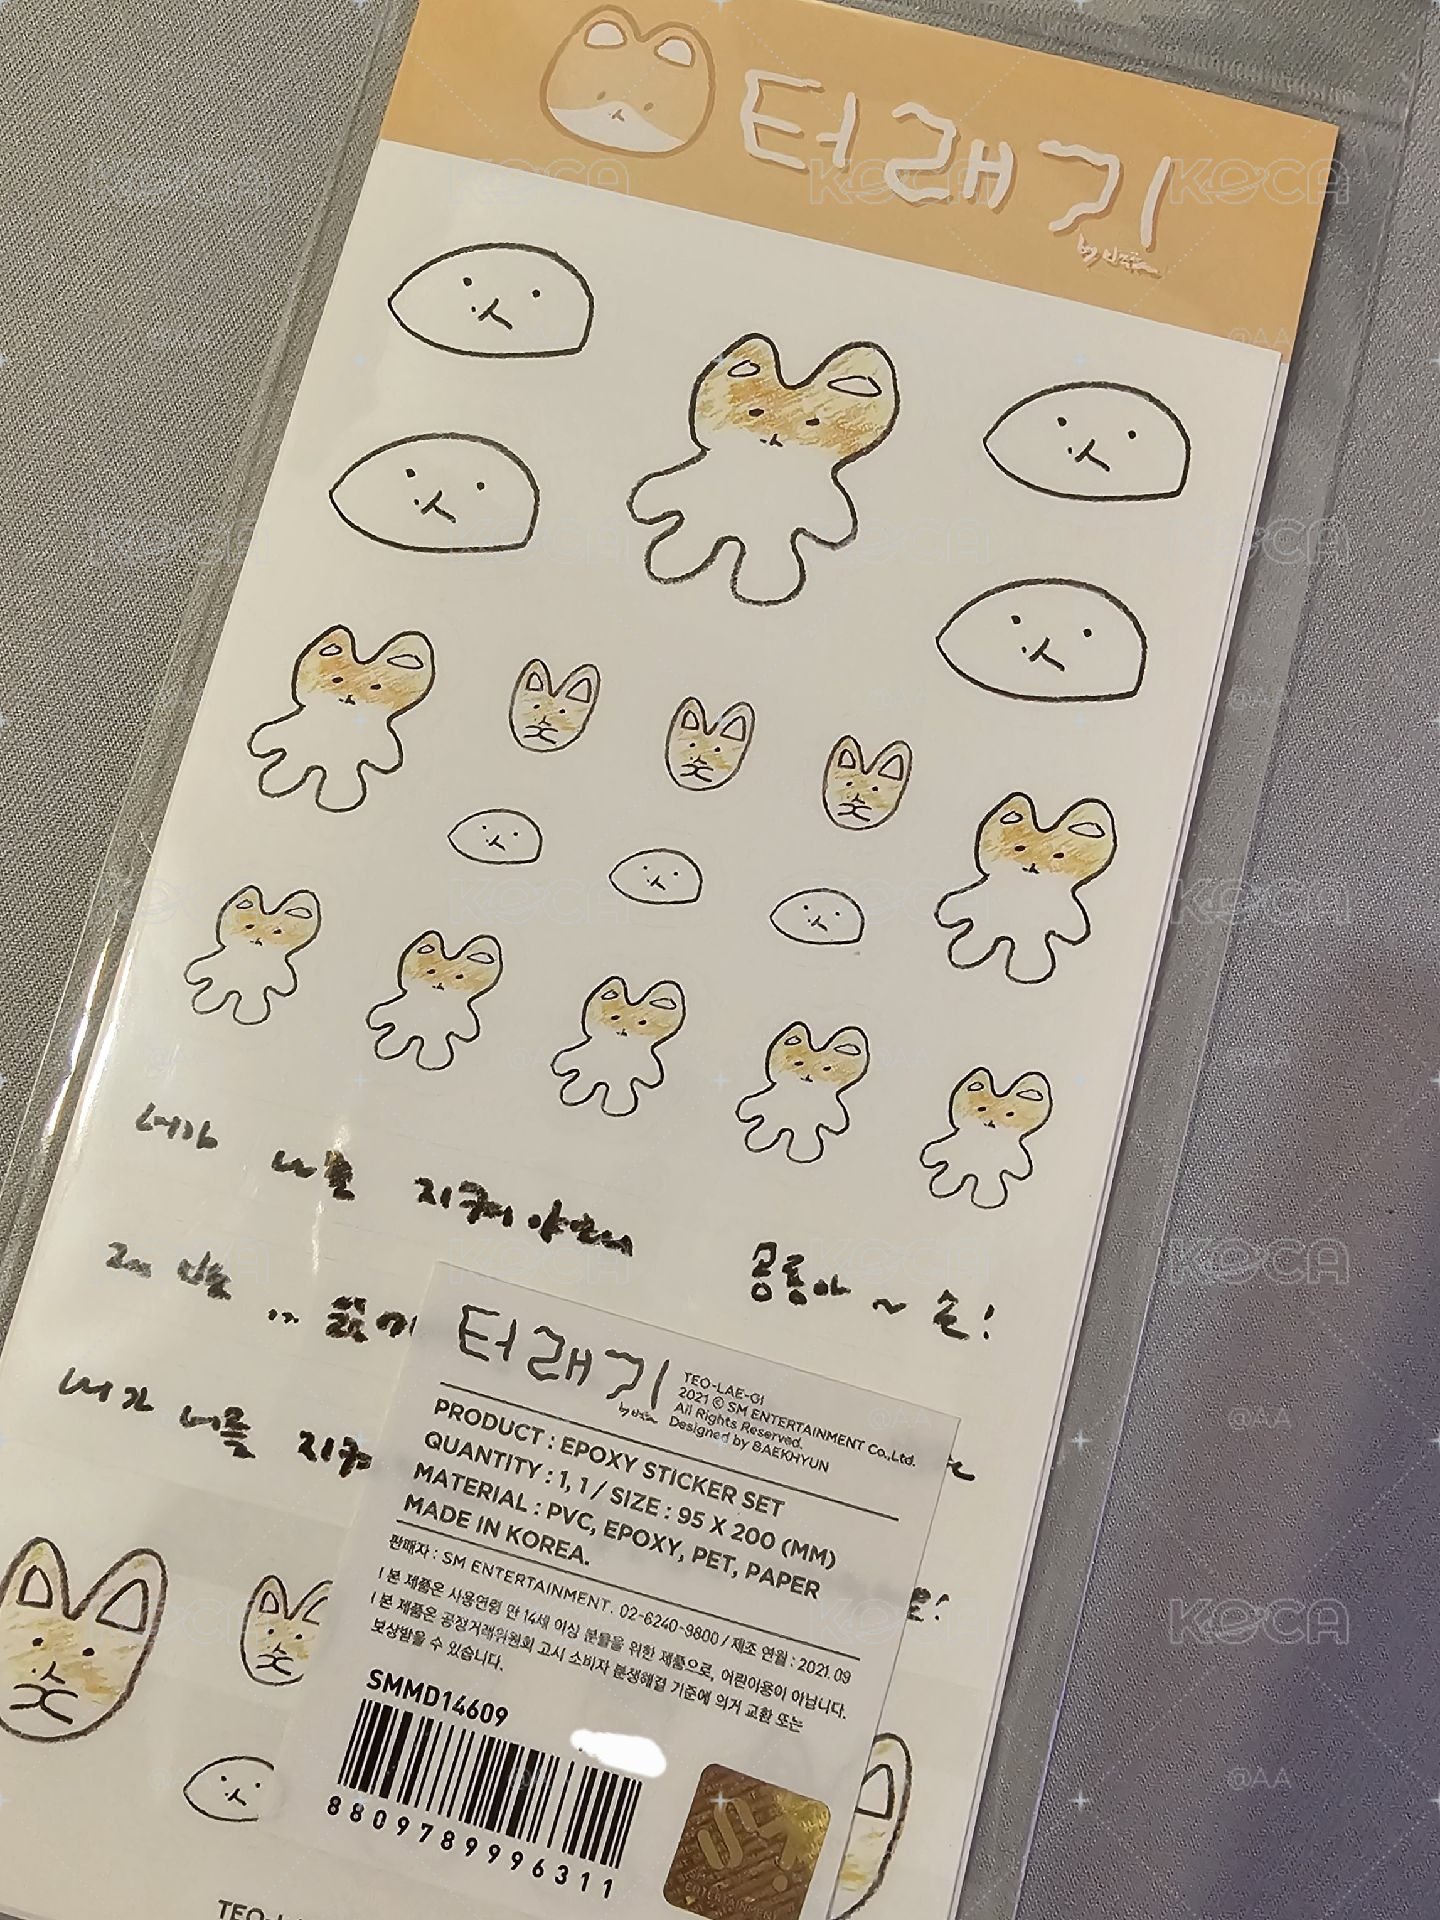 터래기
너가 나를 지켜야만대
공룡아 ~ 손!
터래기
TEO-LAE-GI
2021 © SM ENTERTAINMENT Co.,Ltd.
All Rights Reserved.
Designed by BAEKHYUN
PRODUCT : EPOXY STICKER SET
QUANTITY : 1, 1 / SIZE : 95 X 200 (MM)
MATERIAL : PVC, EPOXY, PET, PAPER
MADE IN KOREA.
판매자 : SM ENTERTAINMENT. 02-6240-9800 / 제조 연월 : 2021. 09
! 본 제품은 사용연령 만 14세 이상 분들을 위한 제품으로, 어린이용이 아닙니다.
! 본 제품은 공정거래위원회 고시 소비자 분쟁해결 기준에 의거 교환 또는
보상받을 수 있습니다.
SMMD14609
8809789996311
ENTERTAINMENT
KOCA
@AA